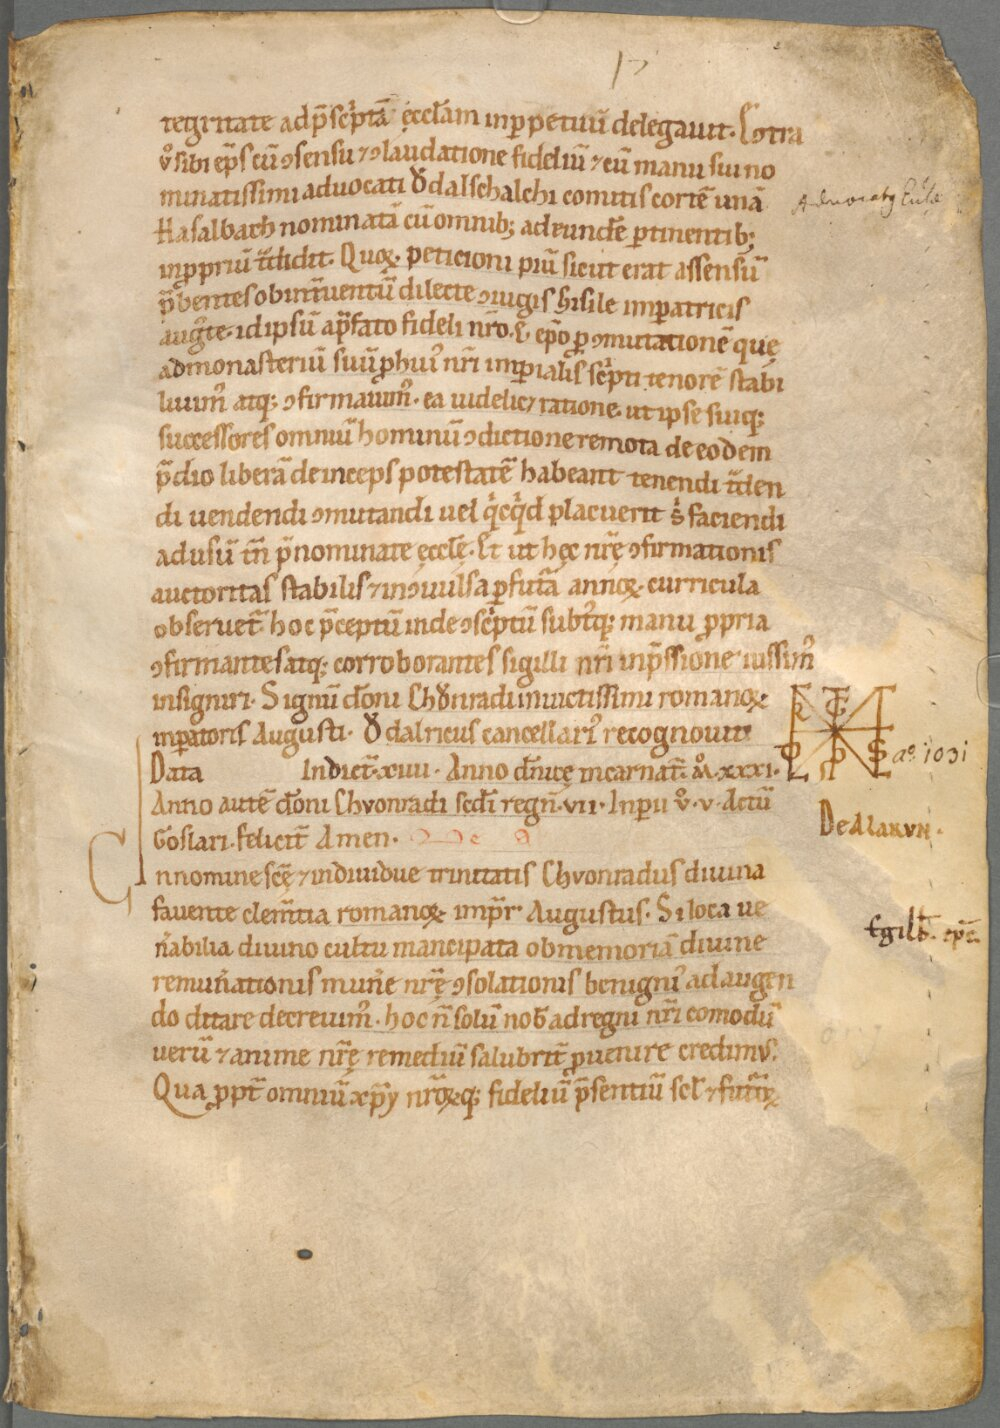 tegritate adp̄sc̄ptā ęccl̄am inp̱petuū delegauit. Eↄtra
v̊ sibi ep̄s cū ↄsensu ⁊ ↄlaudatione fideliū ⁊ cū manu sui no
minatissimi aduocati Ŏdalschalchi comitis cortē unā
Advocatꝰ
Hasalbach nominatā cū omnib; ad eundē p̱tinentib;
inp̱priū t̄didit. Quoꝝ peticioni piū sicut erat assensū
p̄bentes ob int̄uentū dilecte ↄiugis Gisile imp̱atricis
auḡte. id ipsū ap̄fato fideli nr̄o. E. ep̄o p̱ ↄmutationē quę
ad monasteriū suū p̱ huiꝰ nr̄i imp̱ialis sc̄pti tenorē stabi
liuimꝰ atq; ↄfirmauimꝰ. ea uidelic& ratione. ut ipse suiq;
successores omniū hominū ↄdictione remota de eodem
p̄dio liberā deinceps potestatē habeant tenendi t̄den
di uendendi ↄmutandi uel q̇cq̇d placuerit s̄ faciendi
ad usū tm̄ p̄nominate ęccl̄ę. Et ut hęc nr̄ę ↄfirmationis
auctoritas stabilis ⁊ inↄuulsa p̱ futᷓa annoꝝ curricula
obseruet̄ hoc p̄ceptū inde ↄsc̄ptū subtꝰq; manu p̱pria
ↄfirmantes atq; corroborantes sigilli nr̄i inp̄ssione iussimꝰ
insigniri. Signū dōni Chŏnradi inuictissimi romanoꝝ
inp̱atoris Augusti. Ŏdalricus cancellariꝰ recognouit
Data Indict̄. xiiii. Anno dn̄icę incarnat̄. M̊. xxxi.
aº 1031
Anno autē dōni Chvonradi scd̄i regn̄. vii. Inp̱ii v̊. v. Actū
DE ALARVN.
Goslari. felicit̄ Amen.
Innomine scę̄ ⁊ indiuidue trinitatis Chvonradus diuina
fauente clem̄tia romanoꝝ imp̱r Augustus. Si loca ue
Egilb̄. ep̄c
n̄abilia diuino cultu mancipata ob memoriā diuine
remun̄ationis mun̄e nr̄ę ↄsolationis benigniꝰ ad augen
do ditare decreuimꝰ. hoc n̄ solū nob̄ ad regni nr̄i comodū
uerū ⁊ anime nr̄ę remediū salubrit̄ p̱uenire credimꝰ.
Qua p̱pt̄ omniū xp̄i nr̄oꝝq; fideliū p̄sentiū scl̄ ⁊ futᷓoꝝ